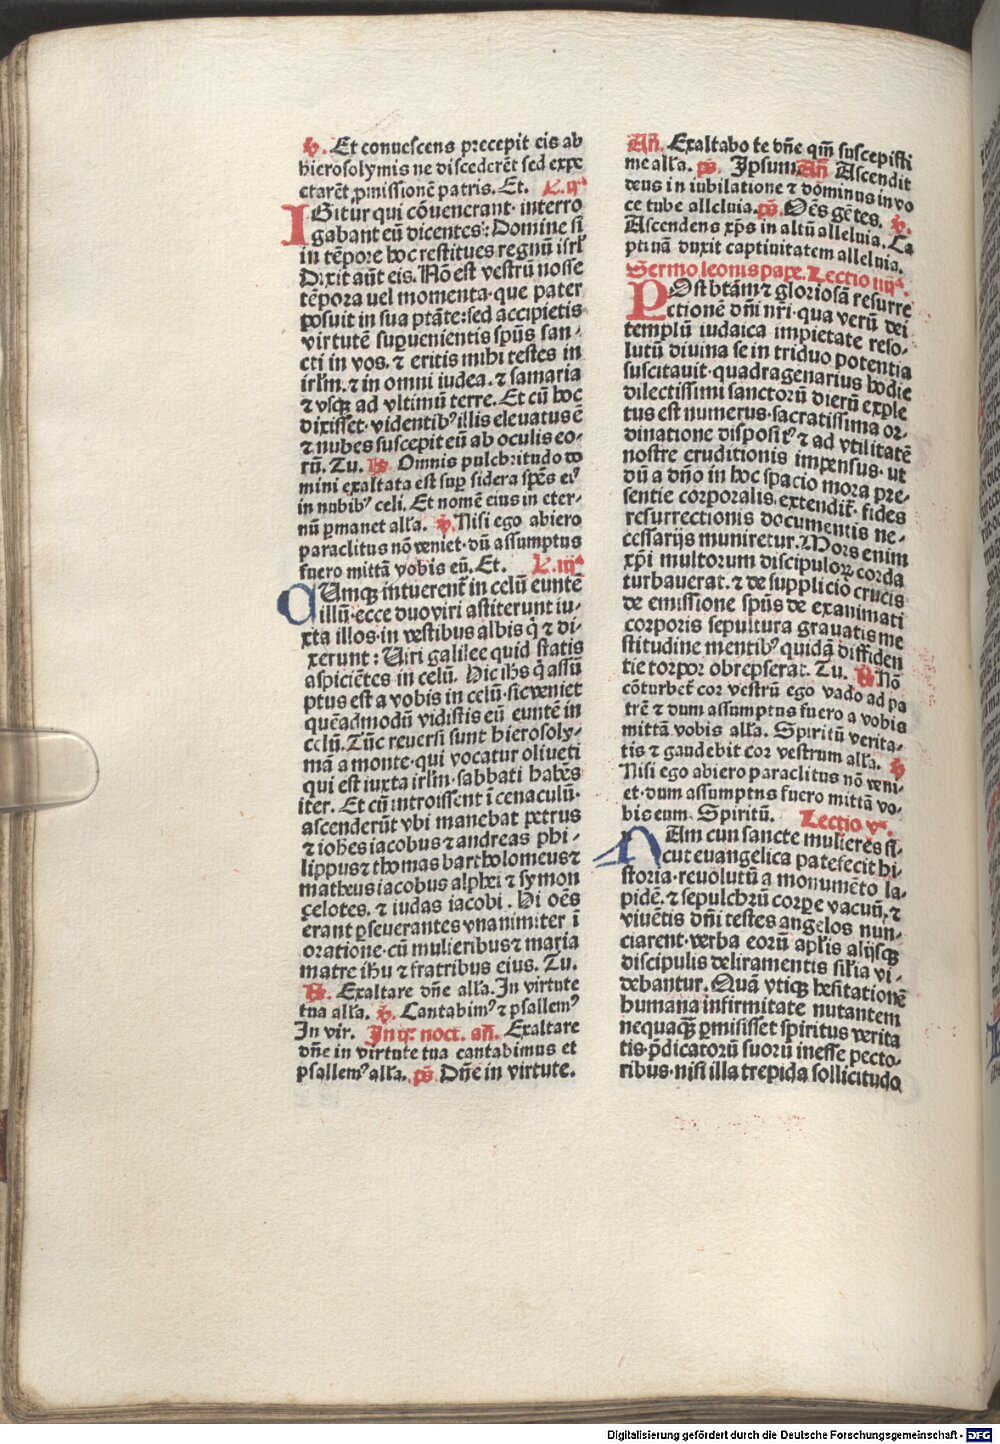 ℣. Et conuescens precepit eis ab
hierosolymis ne discederēt sed expe
ctarēt ꝓmissionē patris. Et. L.ijª
IGitur qui cōuenerant· interro
gabant eū dicentes: Domine si
in tēpore hoc restitues regnū isrl̄
Dixit aūt eis. Nō est vestrū nosse
tēpora uel momenta· que pater
posuit in sua ptāte: sed accipietis
virtutē suꝑuenientis spūs san-
cti in vos. ⁊ eritis mihi testes in
irlm̄. ⁊ in omni iudea. ⁊ samaria
⁊ vsqꝫ ad vltimū terre. Et cū hoc
dixisset· videntibꝰ illis eleuatus ē
⁊ nubes suscepit eū ab oculis eo-
rū. Tu. ℟. Omnis pulchritudo do
mini exaltata est suꝑ sidera spēs eiꝰ
in nubibꝰ celi. Et nomē eius in eter-
nū ꝑmanet all'a. ℣. Nisi ego abiero
paraclitus nō veniet· dū assumptus
fuero mittā vobis eū. Et. L.iijª
CUmqꝫ intuerent̄ in celū euntē
illū· ecce duo viri astiterunt iu-
xta illos· in vestibus albis q̇ ⁊ di-
xerunt: Uiri galilee quid statis
aspiciētes in celū. Hic ih̄s q̇ assū
ptus est a vobis in celū· sic veniet
quēadmodū vidistis eū euntē in
celū. Tūc reuersi sunt hierosoly-
mā a monte· qui vocatur oliueti
qui est iuxta irlm̄· sabbati habēs
iter. Et cū introissent ī cenaculū·
ascenderūt vbi manebat petrus
⁊ ioh̄es iacobus ⁊ andreas phi-
lippus ⁊ thomas bartholomeus ⁊
matheus iacobus alphei ⁊ symon
çelotes. ⁊ iudas iacobi. Hi oēs
erant ꝑseuerantes vnanimiter ī
oratione· cū mulieribus ⁊ maria
matre ih̄u ⁊ fratribus eius. Tu.
℟. Exaltare dn̄e all'a. In virtute
tua all'a. ℣. Cantabimꝰ ⁊ psallemꝰ
In vir. In ij. noct. an̄. Exaltare
dn̄e in virtute tua cantabimus et
psallemꝰ all'a. ps̄. Dn̄e in virtute.
An̄. Exaltabo te dn̄e qm̄ suscepisti
me all'a. ps̄. Ipsum An̄ Ascendit
deus in iubilatione ⁊ dominus in vo
ce tube alleluia. ps̄. Oēs gētes. ℣.
Ascendens xp̄s in altū alleluia. Ca
ptiuā duxit captiuitatem alleluia.
Sermo leonis pape. Lectio iiijª.
POst btām ⁊ gloriosā resurre
ctionē dn̄i nr̄i· qua verū dei
templū iudaica impietate reso-
lutū diuina se in triduo potentia
suscitauit· quadragenarius hodie
dilectissimi sanctorū dierū exple
tus est numerus· sacratissima or-
dinatione dispositꝰ ⁊ ad vtilitatē
nostre eruditionis impensus· ut
dū a dn̄o in hoc spacio mora pre-
sentie corporalis extendit̄· fides
resurrectionis documentis ne-
cessarijs muniretur. Mors enim
xp̄i multorum discipuloꝝ corda
turbauerat. ⁊ de supplicio crucis
de emissione spūs de exanimati
corporis sepultura grauatis me
stitudine mentibꝰ quidā diffiden
tie torpor obrepserat. Tu. ℟ Nō
cōturbet̄ cor vestrū ego vado ad pa
trē ⁊ dum assumptus fuero a vobis
mittā vobis all'a. Spiritū verita-
tis ⁊ gaudebit cor vestrum all'a. ℣
Nisi ego abiero paraclitus nō veni-
et· dum assumptus fuero mittā vo-
bis eum. Spiritū. Lectio vª.
NAm cun sancte mulieres si-
cut euangelica patefecit hi-
storia· reuolutū a monumēto la-
pidē. ⁊ sepulchrū corpe vacuū. ⁊
viuētis dn̄i testes angelos nun-
ciarent· verba eorū apl̄is alijsqꝫ
discipulis deliramentis sil'ia vi-
debantur. Quā vtiqꝫ hesitationē
humana infirmitate nutantem
nequaqꝫ ꝑmisisset spiritus verita
tis· p̄dicatorū suorū inesse pecto-
ribus· nisi illa trepida sollicitudo
Digitalisierung gefördert durch die Deutsche Forschungsgemeinschaft - DFG